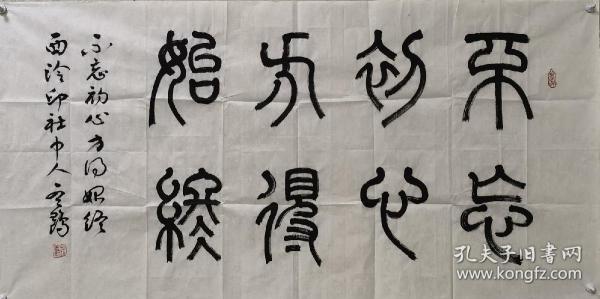 不忘
初心
方得
始終
不忘初心方得始终
西泠印社中人
孔夫子旧书网
www.kongfz.com